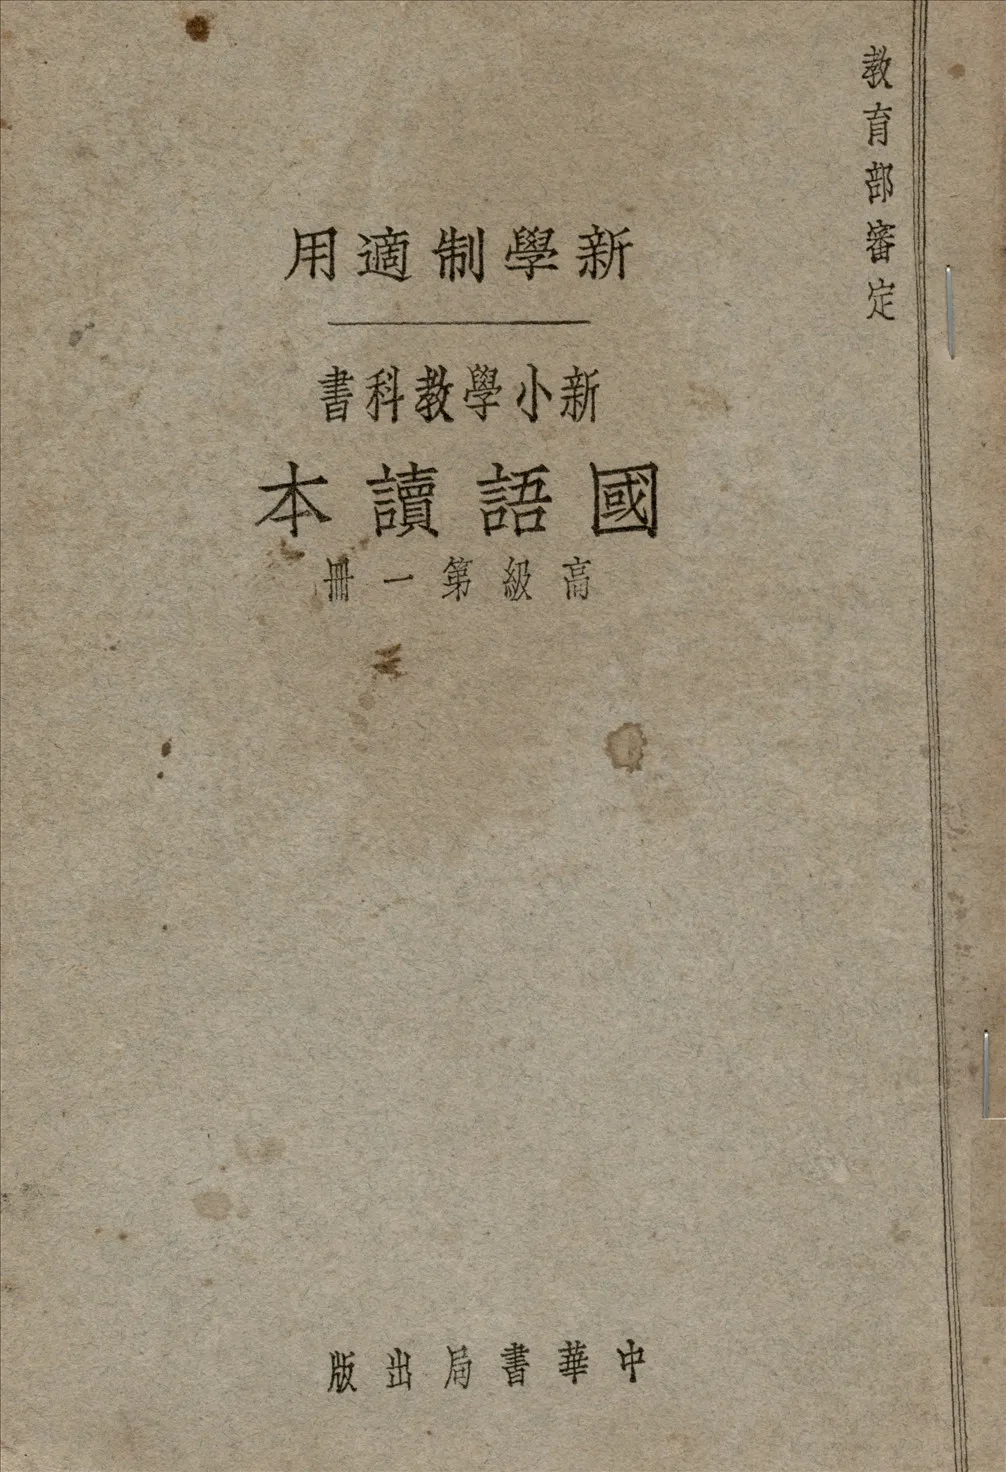 教育部審定
新學制適用
新小學教科書
國語讀本
高級第一冊
中華書局出版